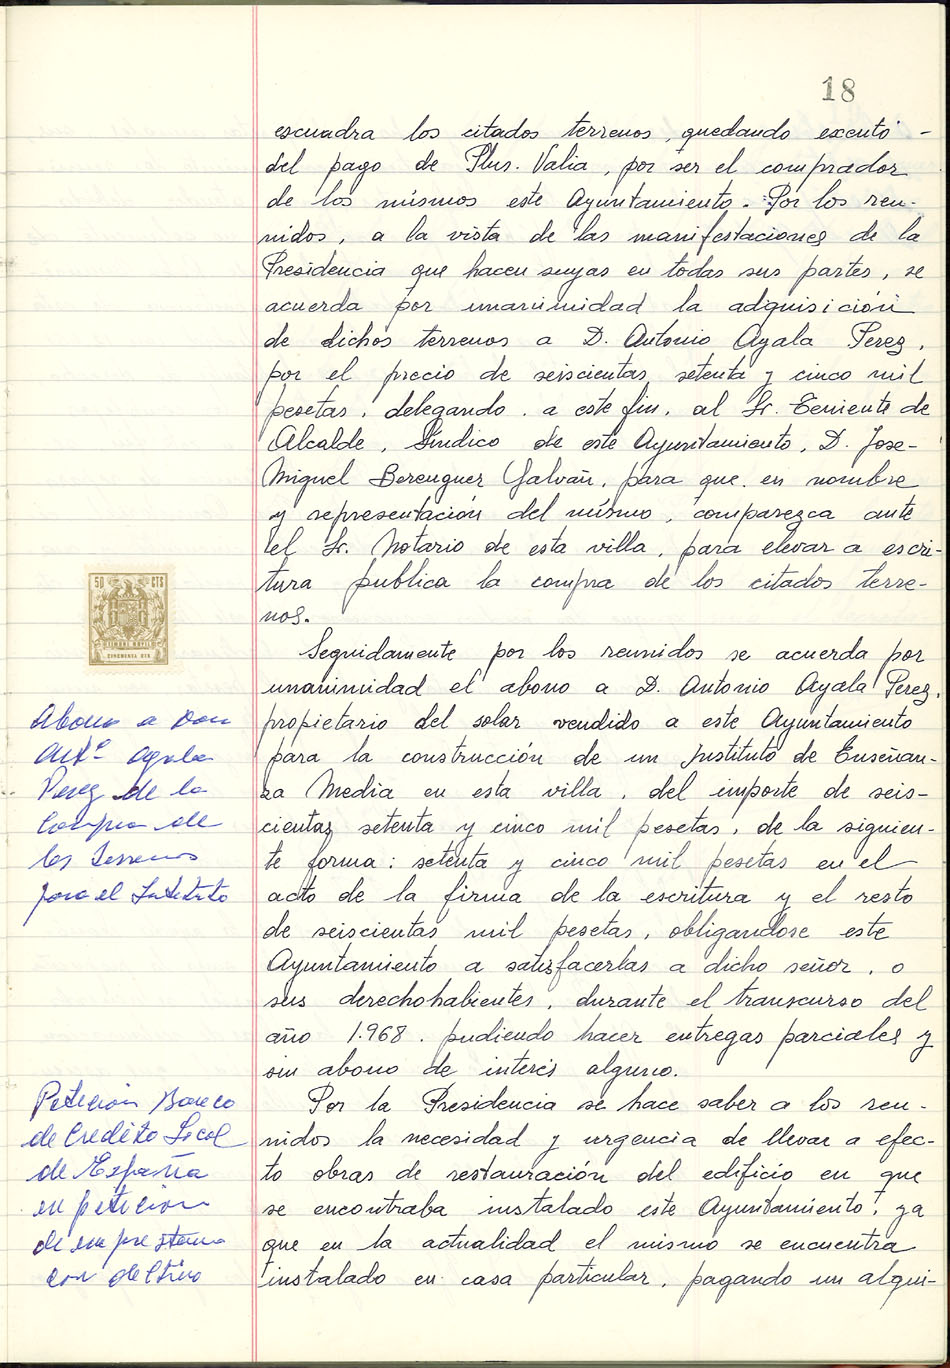 18
escuadra los citados terrenos, quedando exento -
del pago de Plus. Valia, por ser el comprador
de los mismos este Ayuntamiento. Por los reu-
nidos, a la vista de las manifestaciones de la
Presidencia que hacen suyas en todas sus partes, se
acuerda por unanimidad la adquisición
de dichos terrenos a D. Antonio Ayala Perez,
por el precio de seiscientas setenta y cinco mil
pesetas, delegando, a este fin, al Sr. Teniente de
Alcalde, Síndico de este Ayuntamiento, D. Jose-
Miguel Berenguer Galvañ, para que, en nombre
y representación del mismo, comparezca ante
el Sr. Notario de esta villa, para elevar a escri-
tura publica la compra de los citados terre-
nos.
50 CTS
TIMBRE MOVIL
CINCUENTA CTS
Seguidamente por los reunidos se acuerda por
unanimidad el abono a D. Antonio Ayala Perez,
propietario del solar vendido a este Ayuntamiento
para la construcción de un Instituto de Enseñan-
za Media en esta villa, del importe de seis-
cientas setenta y cinco mil pesetas, de la siguien-
te forma: setenta y cinco mil pesetas en el
acto de la firma de la escritura y el resto
de seiscientas mil pesetas, obligandose este
Ayuntamiento a satisfacerlas a dicho señor, o
sus derechohabientes, durante el transcurso del
año 1.968, pudiendo hacer entregas parciales y
sin abono de interés alguno.
Abono a Don
Antº Ayala
Perez de la
Compra de
los Terrenos
para el Instituto
Por la Presidencia se hace saber a los reu-
nidos la necesidad y urgencia de llevar a efec-
to obras de restauración del edificio en que
se encontraba instalado este Ayuntamiento, ya
que en la actualidad el mismo se encuentra
instalado en casa particular, pagando un alqui-
Petición Banco
de Credito Local
de España
en petición
de un prestamo
con destino